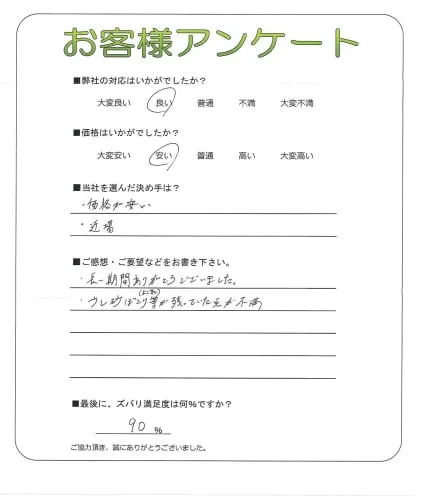 お客様アンケート
■弊社の対応はいかがでしたか？
大変良い 良い 普通 不満 大変不満
■価格はいかがでしたか？
大変安い 安い 普通 高い 大変高い
■当社を選んだ決め手は？
・価格が安い
・近場
■ご感想・ご要望などをお書き下さい。
・長い期間ありがとうございました。
・少し砂ぼこり等が残っていた点が不満
■最後に、ズバリ満足度は何%ですか？
90 %
ご協力頂き、誠にありがとうございました。